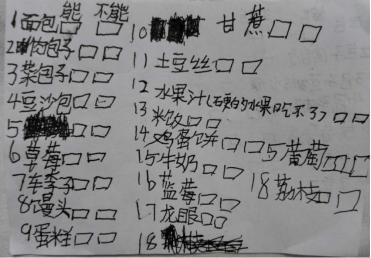 能 不能
1面包□□
2肉包子□□
3菜包子□□
4豆沙包□□
5
6草莓□□
7车李子□□
8馒头□□
9蛋糕□□
10 甘蔗□□
11土豆丝□□
12水果汁(石更的水果吃不了)□□
13米饭□□
14鸡蛋饼□□
15牛奶□□
16蓝莓□□
17龙眼□□
18
5葡萄□□
18荔枝□□